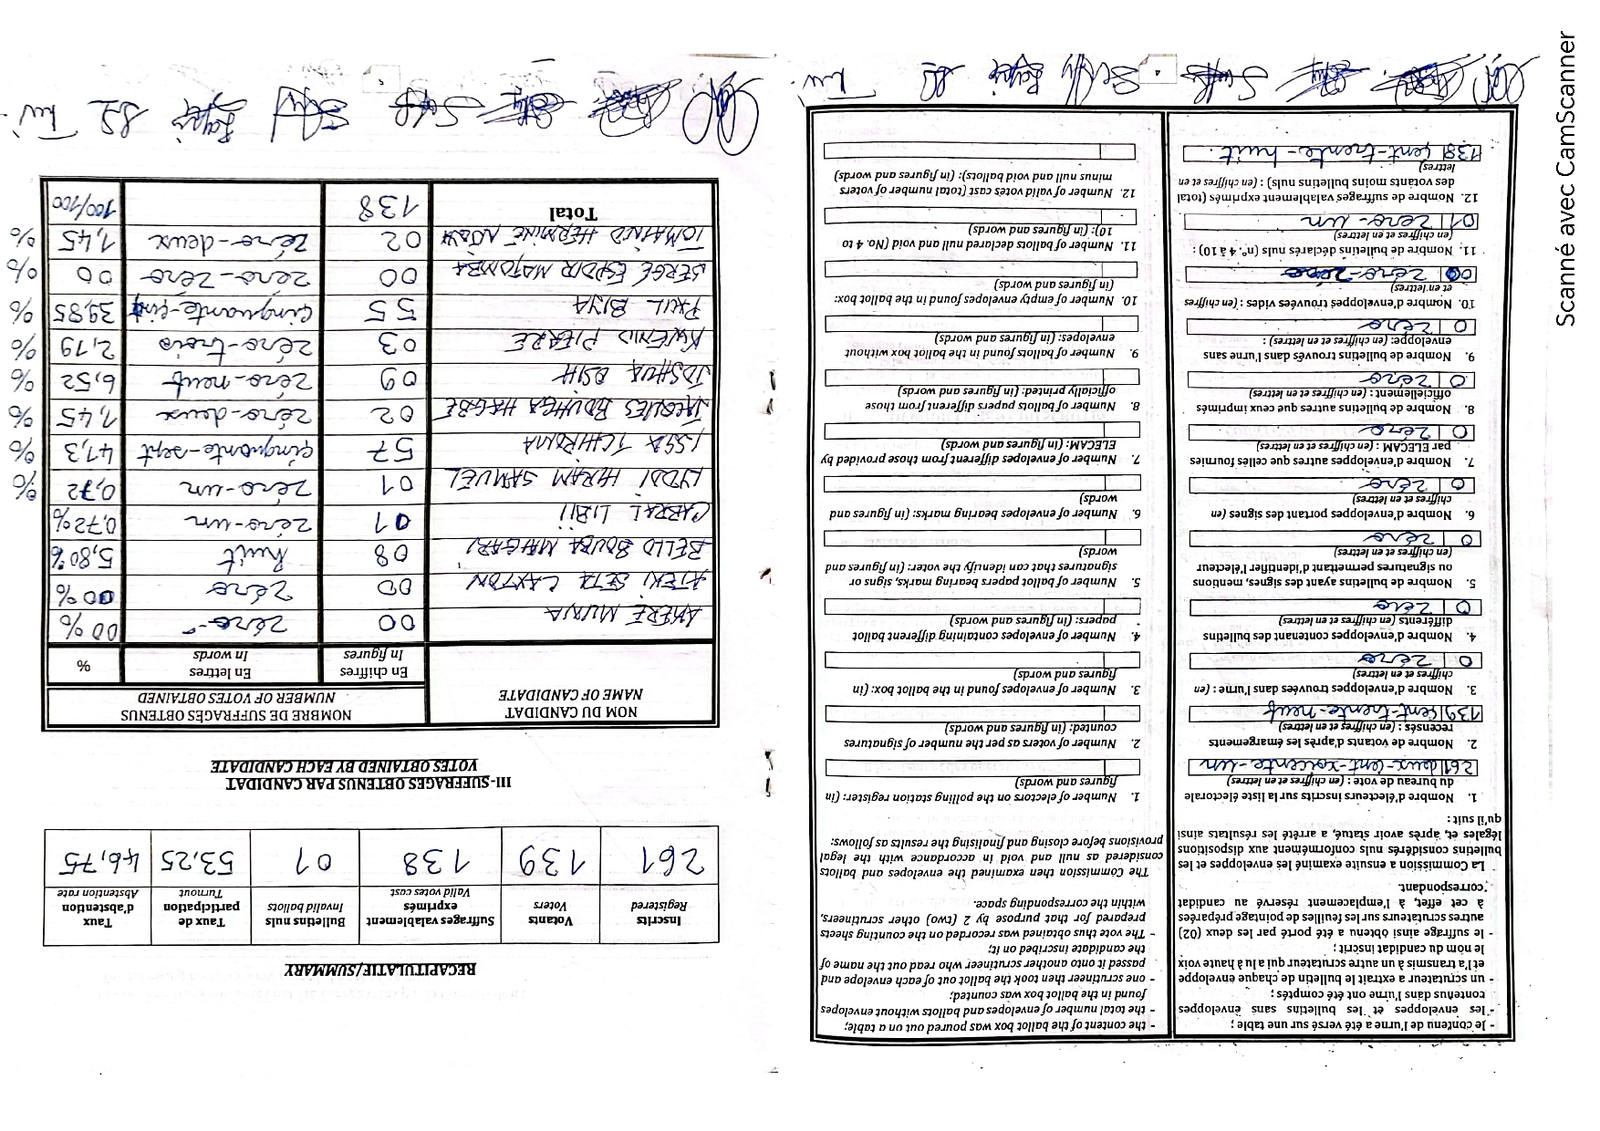 - le contenu de l'urne a été versé sur une table ;
- les enveloppes et les bulletins sans enveloppes
contenus dans l'urne ont été comptés ;
- un scrutateur a extrait le bulletin de chaque enveloppe
et l'a transmis à un autre scrutateur qui a lu à haute voix
le nom du candidat inscrit ;
- le suffrage ainsi obtenu a été porté par les deux (02)
autres scrutateurs sur les feuilles de pointage préparées
à cet effet, à l'emplacement réservé au candidat
correspondant.
La Commission a ensuite examiné les enveloppes et les
bulletins considérés nuls conformément aux dispositions
légales et, après avoir statué, a arrêté les résultats ainsi
qu'il suit :
1. Nombre d'électeurs inscrits sur la liste électorale
du bureau de vote : (en chiffres et en lettres)
261 deux-cent-soixante-un
2. Nombre de votants d'après les émargements
recensés : (en chiffres et en lettres)
139 cent-trente-neuf
3. Nombre d'enveloppes trouvées dans l'urne : (en
chiffres et en lettres)
0 zéro
4. Nombre d'enveloppes contenant des bulletins
différents (en chiffres et en lettres)
0 zéro
5. Nombre de bulletins ayant des signes, mentions
ou signatures permettant d'identifier l'électeur
(en chiffres et en lettres)
0 zéro
6. Nombre d'enveloppes portant des signes (en
chiffres et en lettres)
0 zéro
7. Nombre d'enveloppes autres que celles fournies
par ELECAM : (en chiffres et en lettres)
0 zéro
8. Nombre de bulletins autres que ceux imprimés
officiellement : (en chiffres et en lettres)
0 zéro
9. Nombre de bulletins trouvés dans l'urne sans
enveloppe: (en chiffres et en lettres) :
0 zéro
10. Nombre d'enveloppes trouvées vides : (en chiffres
et en lettres)
00 zéro-zéro
11. Nombre de bulletins déclarés nuls (n°. 4 à 10) :
(en chiffres et en lettres)
01 zéro-un
12. Nombre de suffrages valablement exprimés (total
des votants moins bulletins nuls) : (en chiffres et en
lettres)
138 cent-trente-huit.
- the content of the ballot box was poured out on a table;
- the total number of envelopes and ballots without envelopes
found in the ballot box was counted;
- one scrutineer then took the ballot out of each envelope and
passed it onto another scrutineer who read out the name of
the candidate inscribed on it;
- The vote thus obtained was recorded on the counting sheets
prepared for that purpose by 2 (two) other scrutineers,
within the corresponding space.
The Commission then examined the envelopes and ballots
considered as null and void in accordance with the legal
provisions before closing and finalising the results as follows:
1. Number of electors on the polling station register: (in
figures and words)
2. Number of voters as per the number of signatures
counted: (in figures and words)
3. Number of envelopes found in the ballot box: (in
figures and words)
4. Number of envelopes containing different ballot
papers: (in figures and words)
5. Number of ballot papers bearing marks, signs or
signatures that can identify the voter: (in figures and
words
6. Number of envelopes bearing marks: (in figures and
words)
7. Number of envelopes different from those provided by
ELECAM: (in figures and words)
8. Number of ballots papers different from those
officially printed: (in figures and words)
9. Number of ballots found in the ballot box without
envelopes: (in figures and words)
10. Number of empty envelopes found in the ballot box:
(in figures and words)
11. Number of ballots declared null and void (No. 4 to
10): (in figures and words)
12. Number of valid votes cast (total number of voters
minus null and void ballots): (in figures and words)
RECAPITULATIF/SUMMARY
Inscrits Registered | Votants Voters | Suffrages valablement exprimés Valid votes cast | Bulletins nuls Invalid ballots | Taux de participation Turnout | Taux d'abstention Abstention rate
261 | 139 | 138 | 01 | 53,25 | 46,75
III-SUFFRAGES OBTENUS PAR CANDIDAT
VOTES OBTAINED BY EACH CANDIDATE
NOM DU CANDIDAT NAME OF CANDIDATE | NOMBRE DE SUFFRAGES OBTENUS NUMBER OF VOTES OBTAINED
En chiffres In figures | En lettres In words | %
AKERE MUNA 00 zéro 00 %
ATEKI SETA CAXTON 00 zéro 00 %
BELLO BOUBA MAIGARI 08 huit 5,80 %
CABRAL LIBII 01 zéro-un 0,72 %
LYDDI HIRAM SAMUEL 01 zéro-un 0,72 %
ISSA TCHIROMA 57 cinquante-sept 41,3 %
JACQUES BOUHGA HAGBE 02 zéro-deux 1,45 %
JOSHUA OSIH 09 zéro-neuf 6,52 %
KWEMO PIERRE 03 zéro-trois 2,19 %
PAUL BIYA 55 cinquante-cinq 39,85 %
SERGE ESPOIR MATOMBA 00 zéro-zéro 00 %
TOMAINO HERMINE NDAM 02 zéro-deux 1,45 %
Total 138 100/100
Scanné avec CamScanner